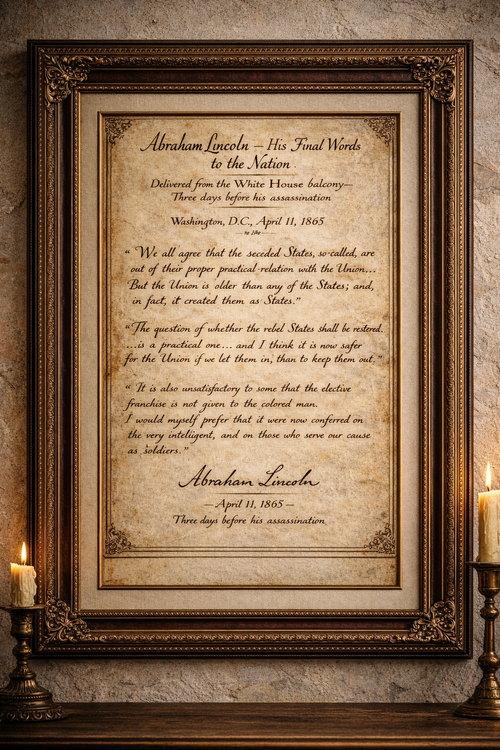 Abraham Lincoln – His Final Words
to the Nation.
Delivered from the White House balcony–
Three days before his assassination
Washington, D.C., April 11, 1865
“We all agree that the seceded States, so-called, are
out of their proper practical relation with the Union...
But the Union is older than any of the States; and,
in fact, it created them as States.”
“The question of whether the rebel States shall be restored.
...is a practical one... and I think it is now safer
for the Union if we let them in, than to keep them out.”
“It is also unsatisfactory to some that the elective
franchise is not given to the colored man.
I would myself prefer that it were now conferred on
the very intelligent, and on those who serve our cause
as soldiers.”
Abraham Lincoln
– April 11, 1865 –
Three days before his assassination.